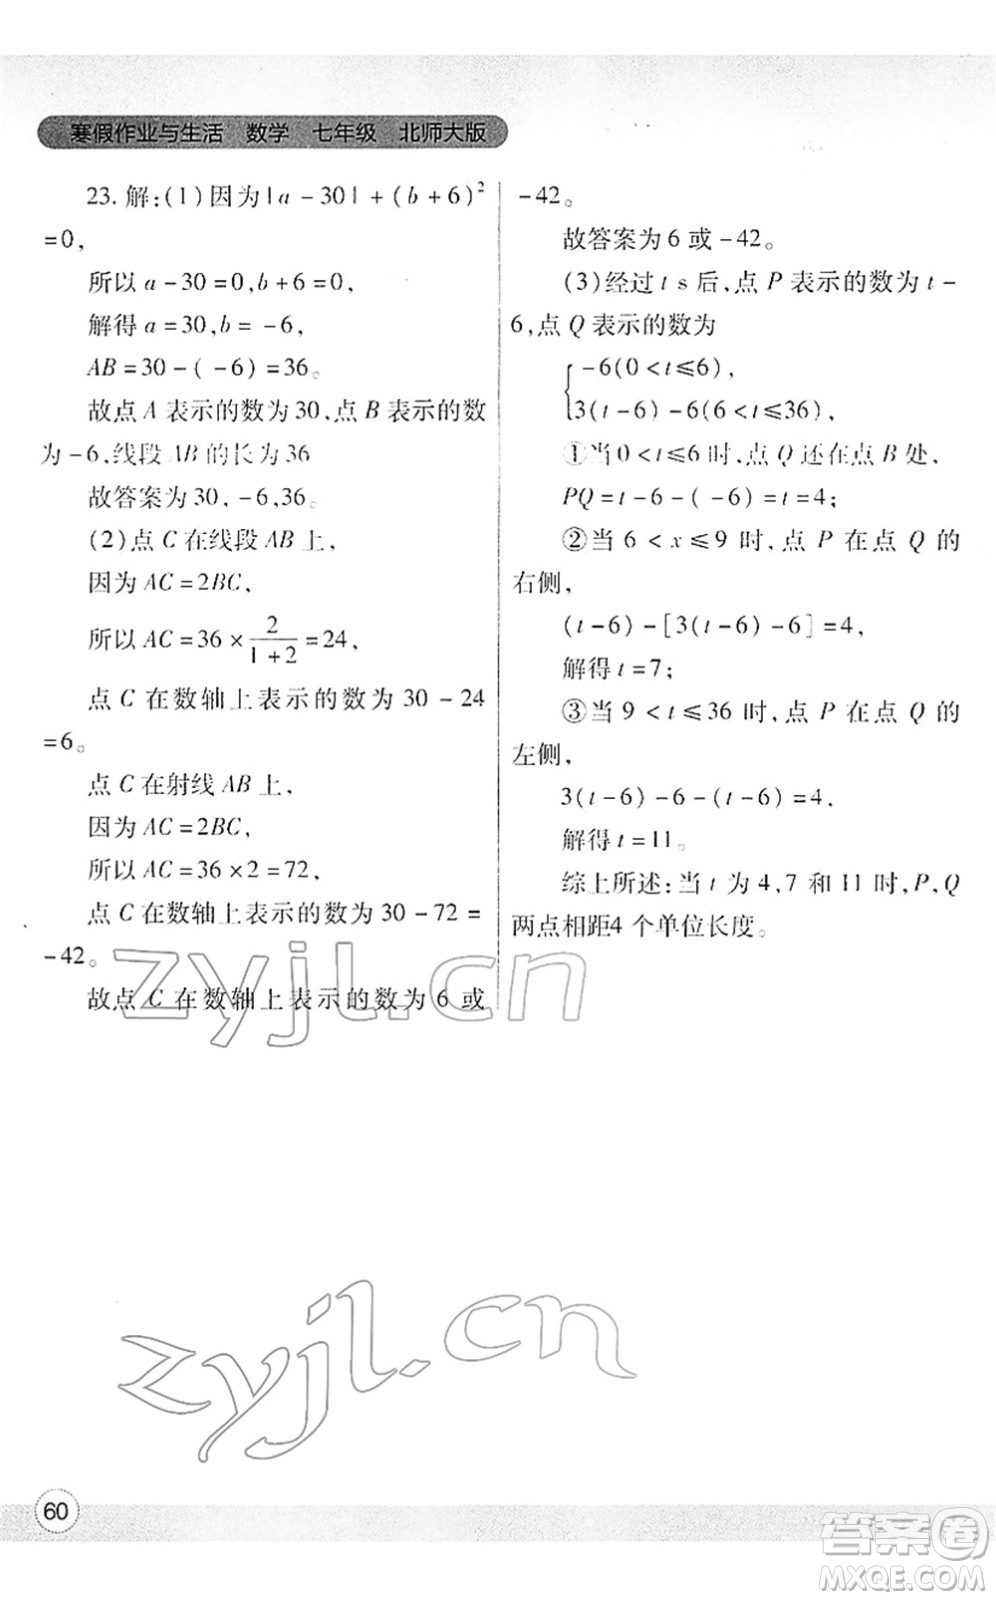 寒假作业与生活 数学 七年级 北师大版
23. 解:(1)因为|a-30|+(b+6)²
=0,
所以 a-30=0,b+6=0,
解得 a=30,b=-6,
AB=30-(-6)=36。
故点 A 表示的数为30,点 B 表示的数
为-6,线段 AB 的长为36
故答案为30,-6,36。
(2)点 C 在线段 AB 上,
因为 AC=2BC,
所以 AC=36×2/(1+2)=24,
点 C 在数轴上表示的数为 30-24
=6。
点 C 在射线 AB 上,
因为 AC=2BC,
所以 AC=36×2=72,
点 C 在数轴上表示的数为 30-72=
-42。
故点 C 在数轴上表示的数为 6 或
-42。
故答案为 6 或-42。
(3)经过 t s 后,点 P 表示的数为 t-
6,点 Q 表示的数为
-6(0<t≤6),
3(t-6)-6(6<t≤36),
①当 0<t≤6 时,点 Q 还在点 B 处,
PQ=t-6-(-6)=t=4;
②当 6<x≤9 时,点 P 在点 Q 的
右侧,
(t-6)-[3(t-6)-6]=4,
解得 t=7;
③当 9<t≤36 时,点 P 在点 Q 的
左侧,
3(t-6)-6-(t-6)=4,
解得 t=11。
综上所述:当 t 为 4,7 和 11 时,P,Q
两点相距4 个单位长度。
zyjl.cn
zyjl.cn
60
答案卷
MXQE.COM